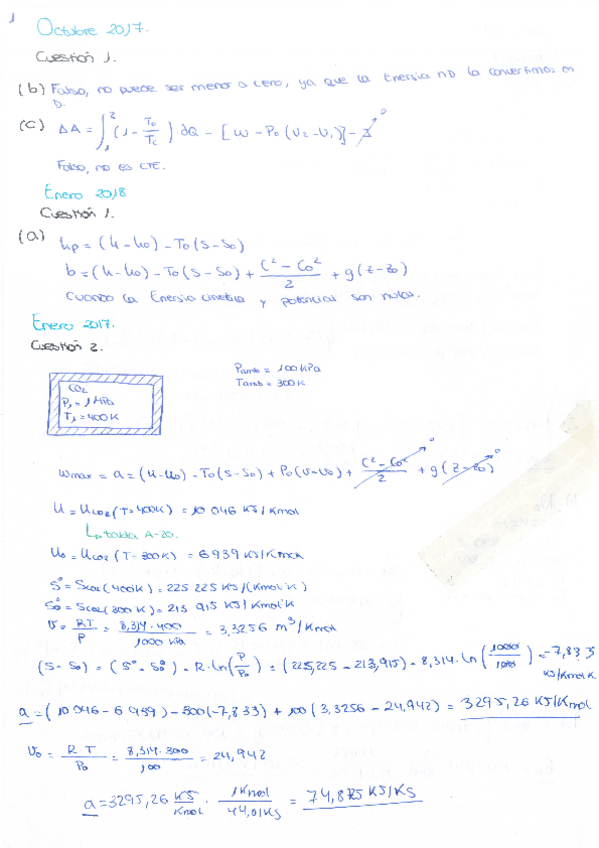 Octubre 2017.
Cuestión 1.
(b) Falso, no puede ser menor a cero, ya que la Energia no la convertimos en
D.
(c) ΔA = ∫₁² (1 - To/Tc) dQ - [W - Po(V2 - V1)] -
Falso, no es CTE.
Enero 2018
Cuestión 1.
(a) hp = (h - ho) - To(s - so)
b = (h - ho) - To(s - so) + (C² - Co²)/2 + g(z - zo)
Cuando la Energia cinetica y potencial son nulas.
Enero 2017.
Cuestión 2.
Pamb = 100 KPa
Tamb = 300K
CO2
P1 = 1 MPa
T1 = 400K
wmax = a = (u - uo) - To(s - so) + Po(v - vo) + (C² - Co²)/2 ⁰ + g(z - zo) ⁰
u = uCO2 (T = 400K) = 10 046 KJ/Kmol
↳ tabla A-20.
uo = uCO2 (T = 300K) = 6939 KJ/Kmol
S° = SCO2 (400K) = 225 225 KJ/(Kmol·K)
So° = SCO2 (300K) = 213 915 KJ/Kmol·K
v = RT/P = 8,314·400/1000 KPa = 3,3256 m³/Kmol
(s - so) = (S° - So°) - R·ln(P/Po) = (225,225 - 213,915) - 8,314·ln(1000/100) = -7,833
KJ/Kmol K
a = (10 046 - 6 939) - 300(-7,833) + 100(3,3256 - 24,942) = 3295,26 KJ/Kmol
vo = R T/Po = 8,314·300/100 = 24,942
a = 3295,26 KJ/Kmol · 1 Kmol/44,01 KS = 74,875 KJ/KS